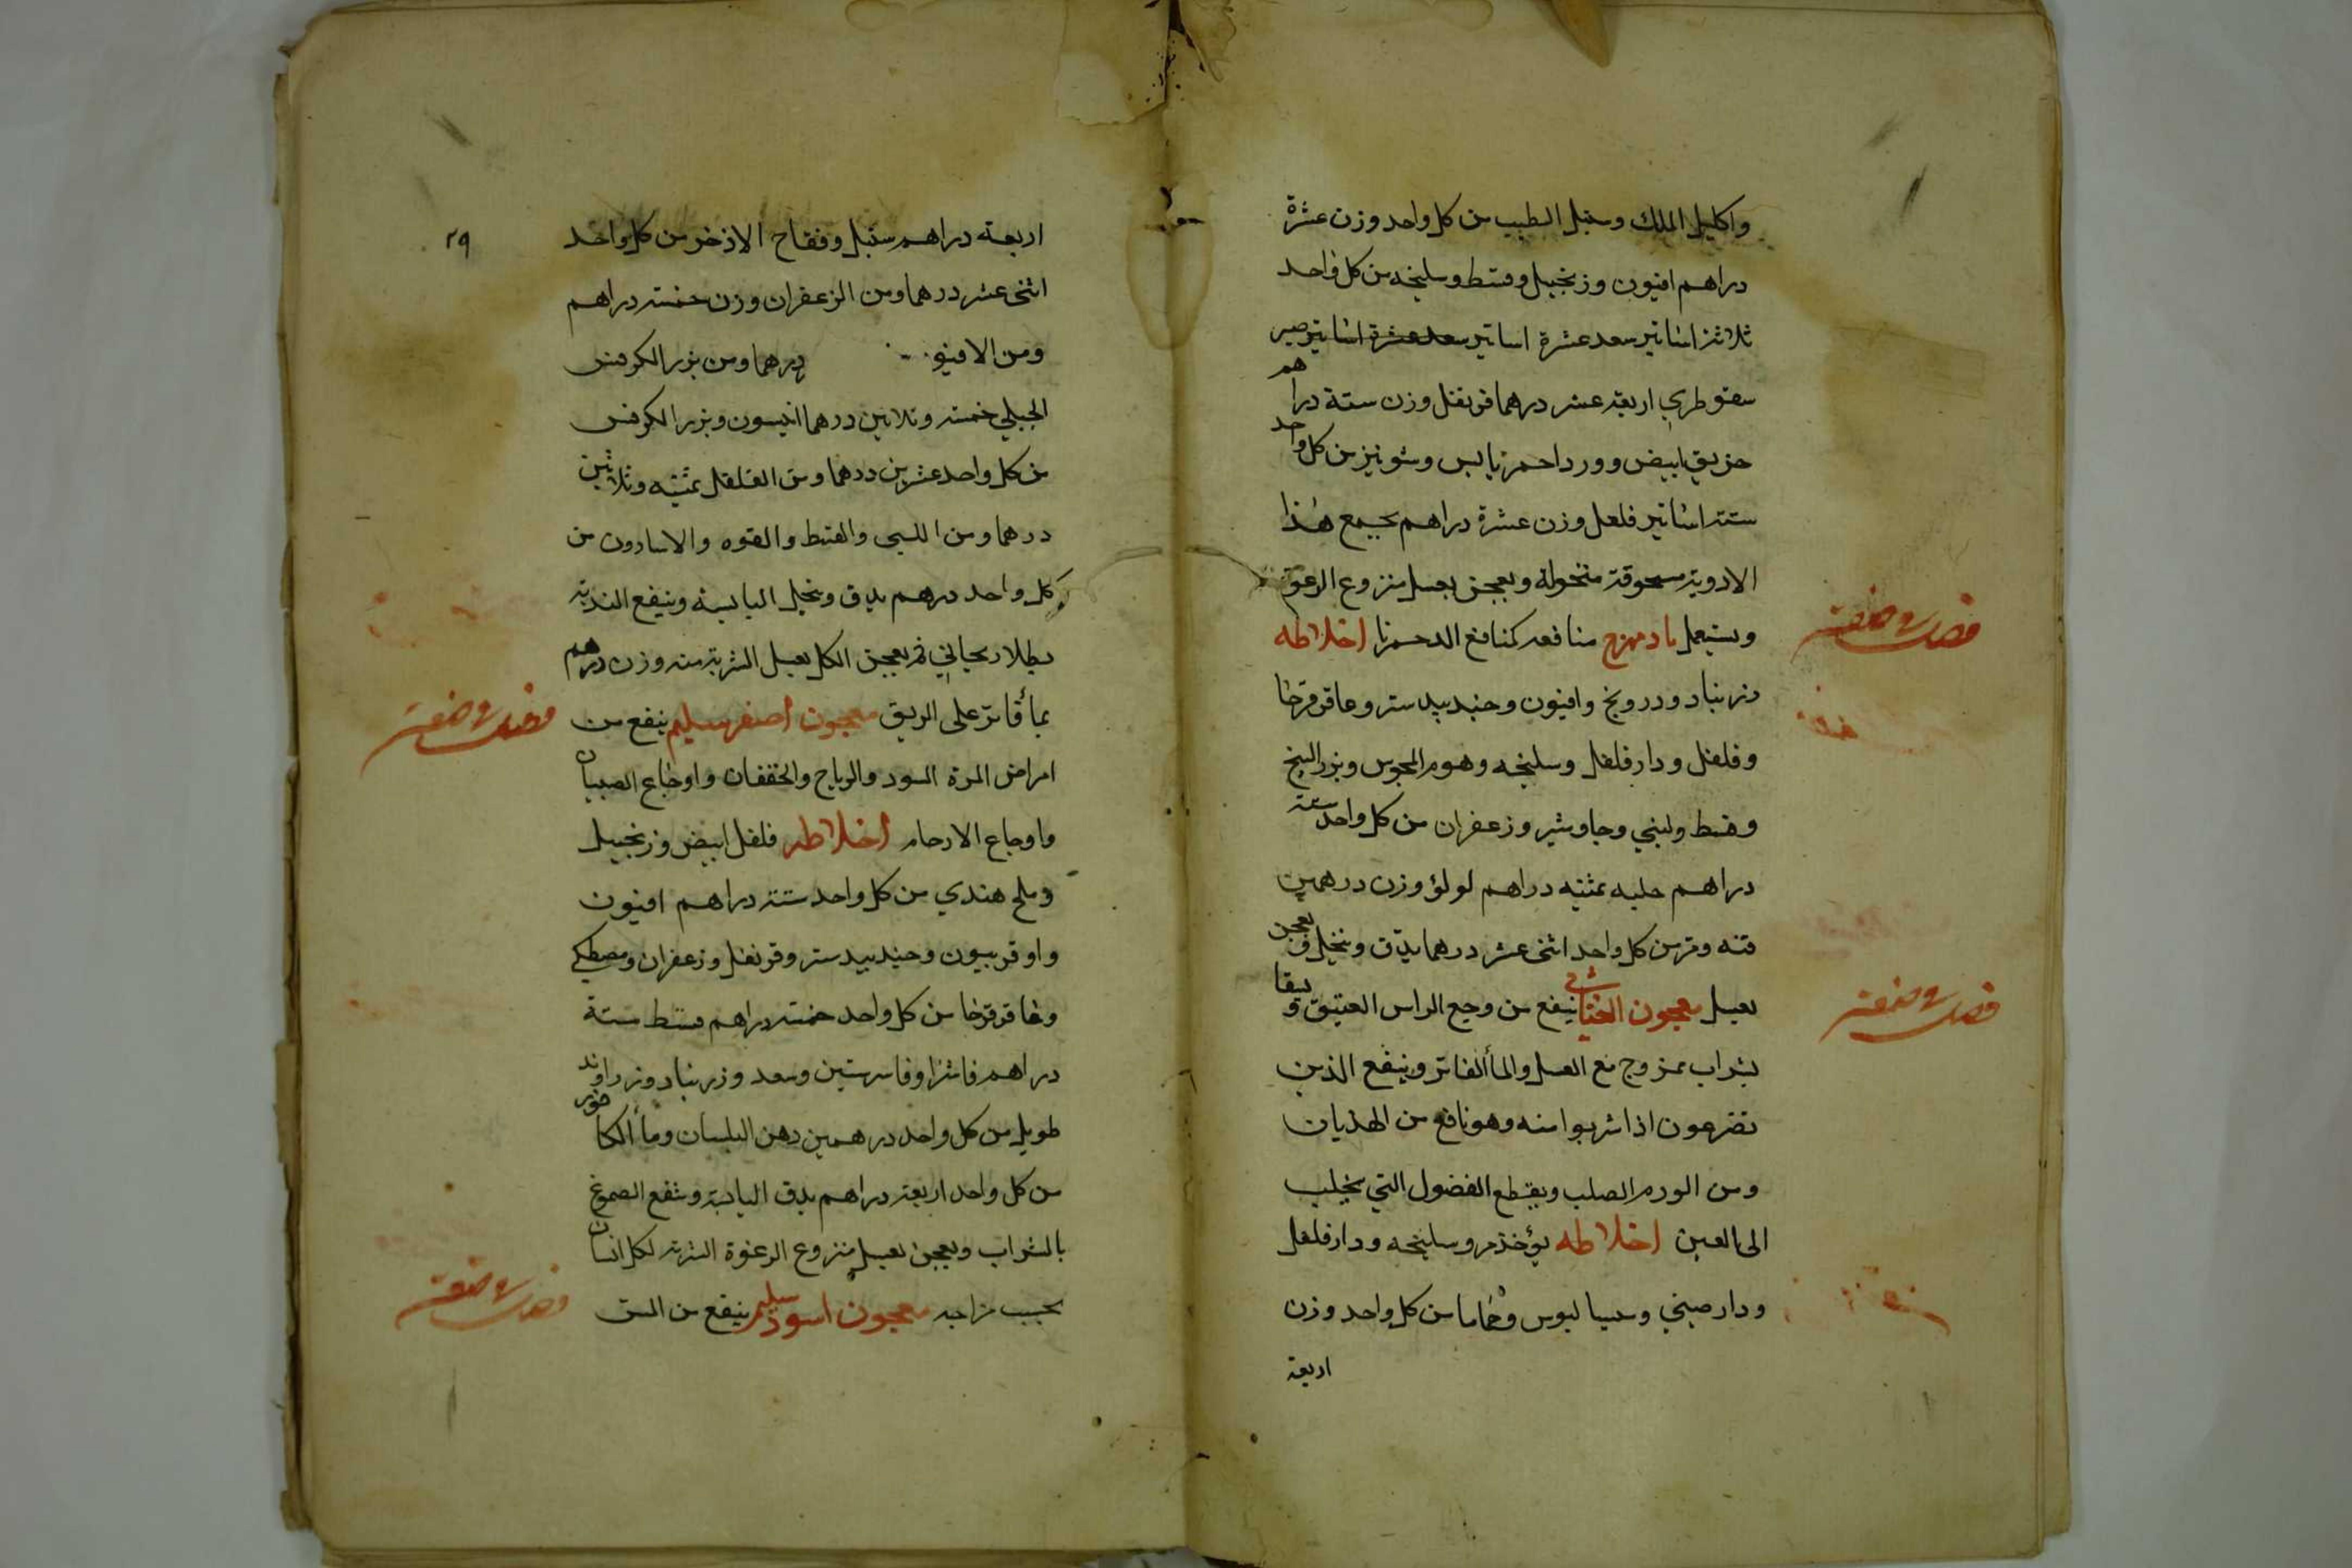 واكليل الملك وسنبل الطيب من كل واحد وزن عشرة
دراهم افيون وزنجبيل وقسط وسليخه من كل واحد
ثلاثة اساتير سعد عشرة اساتير سعد عشرة اساتير صبر
سقوطري اربعة عشر درهما قرنفل وزن ستة دراهم
خربق ابيض وورد احمر يابس وشونيز من كل واحد
ستة اساتير فلفل وزن عشرة دراهم يجمع هذا
الادوية مسحوقة منخولة ويعجن بعسل منزوع الرغوة
ويستعمل بادمهرج منافعه كمنافع الدحمرثا اخلاطه
فصل في صفته
زرنباد ودرونج وافيون وجندبيدستر وعاقرقرحا
وفلفل ودارفلفل وسليخه وهوم المجوس وبزر البنج
وقسط ولبني وجاوشير وزعفران من كل واحد ستة
دراهم حلبه ثمنيه دراهم لولؤ وزن درهمين
قنه ومر من كل واحد اثنى عشر درهما يدق وينخل ويعجن
بعسل معجون الغياثي ينفع من وجع الراس العتيق ويسقا
فصل في صفته
بشراب ممزوج مع العسل والمأ الفاتر وينفع الذين
تضرعون اذا شربوا منه وهو نافع من الهذيان
ومن الورم الصلب ويقطع الفضول التي يجلب
الى العين اخلاطه يؤخذ مر وسليخه ودارفلفل
ودارصيني وسسالبوس وحماما من كل واحد وزن
اربعة
٢٩
اربعة دراهم سنبل وفقاح الاذخر من كل واحد
اثنى عشر درهما ومن الزعفران وزن خمسة دراهم
ومن الافيو درهما ومن بزر الكرفس
الجبلي خمسة وثلاثين درهما انيسون وبزر الكرفس
من كل واحد عشرين درهما ومن الفلفل ثمنيه وثلاثين
درهما ومن اللبني والقسط والفوه والاسارون من
كل واحد درهم يدق وينخل اليابسة وينفع الندية
بطلا ريحاني ثم يعجن الكل بعسل الشربة منه وزن درهم
بمأ فاتر على الريق معجون اصفر سليم ينفع من
فصل في صفته
امراض المرة السود والرياح والخفقان واوجاع الصبيان
واوجاع الارحام اخلاطه فلفل ابيض وزنجبيل
وملح هندي من كل واحد ستة دراهم افيون
واوفربيون وجندبيدستر وقرنفل وزعفران ومصطكي
وعاقرقرحا من كل واحد خمسة دراهم قسط ستة
دراهم فاشرا وفاشرستين وسعد وزرنباد وزراوند
طويل من كل واحد درهمين دهن البلسان ومأ الكافور
من كل واحد اربعة دراهم يدق اليابسة وينقع الصموغ
بالشراب ويعجن بعسل منزوع الرغوة الشربة لكل انسان
بحسب مزاجه معجون اسود سليم ينفع من السل
فصل في صفته